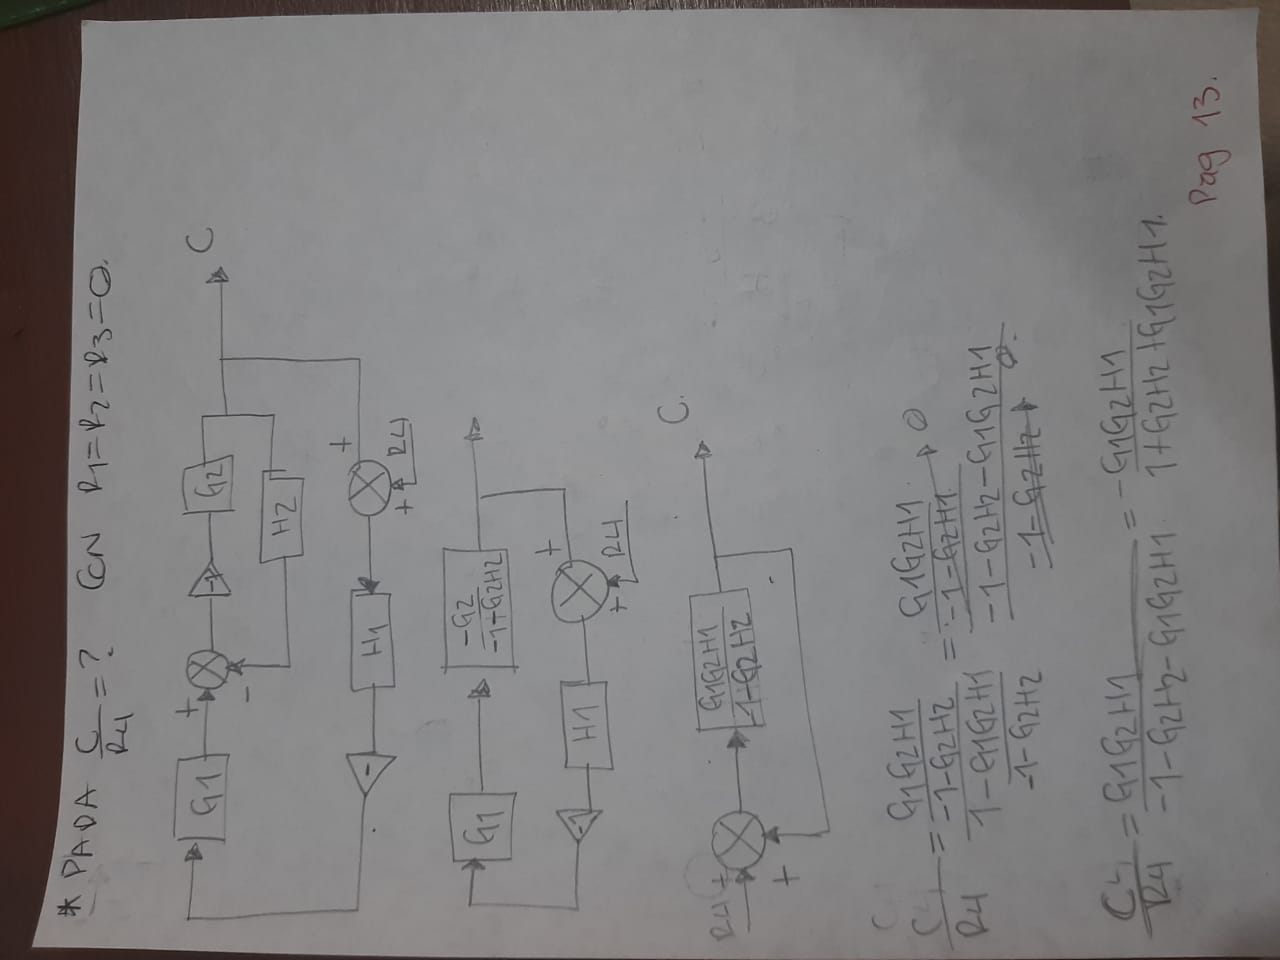 * PADA C/R4 = ? CON R1=R2=R3=0.
G1 + - -1 G2 C
H2
- H1 + + R4
G1 -G2/-1+G2H2
-1 H1 + + R4
R4 + + G1G2H1/-1-G2H2 C.
-
C
C/R4 = (G1G2H1/-1-G2H2)/(1-G1G2H1/-1-G2H2) = (G1G2H1/-1-G2H1)/(-1-G2H2-G1G2H1/-1-G2H2) → 0 0.
C/R4 = G1G2H1/-1-G2H2-G1G2H1 = -G1G2H1/1+G2H2+G1G2H1.
Pag 13.